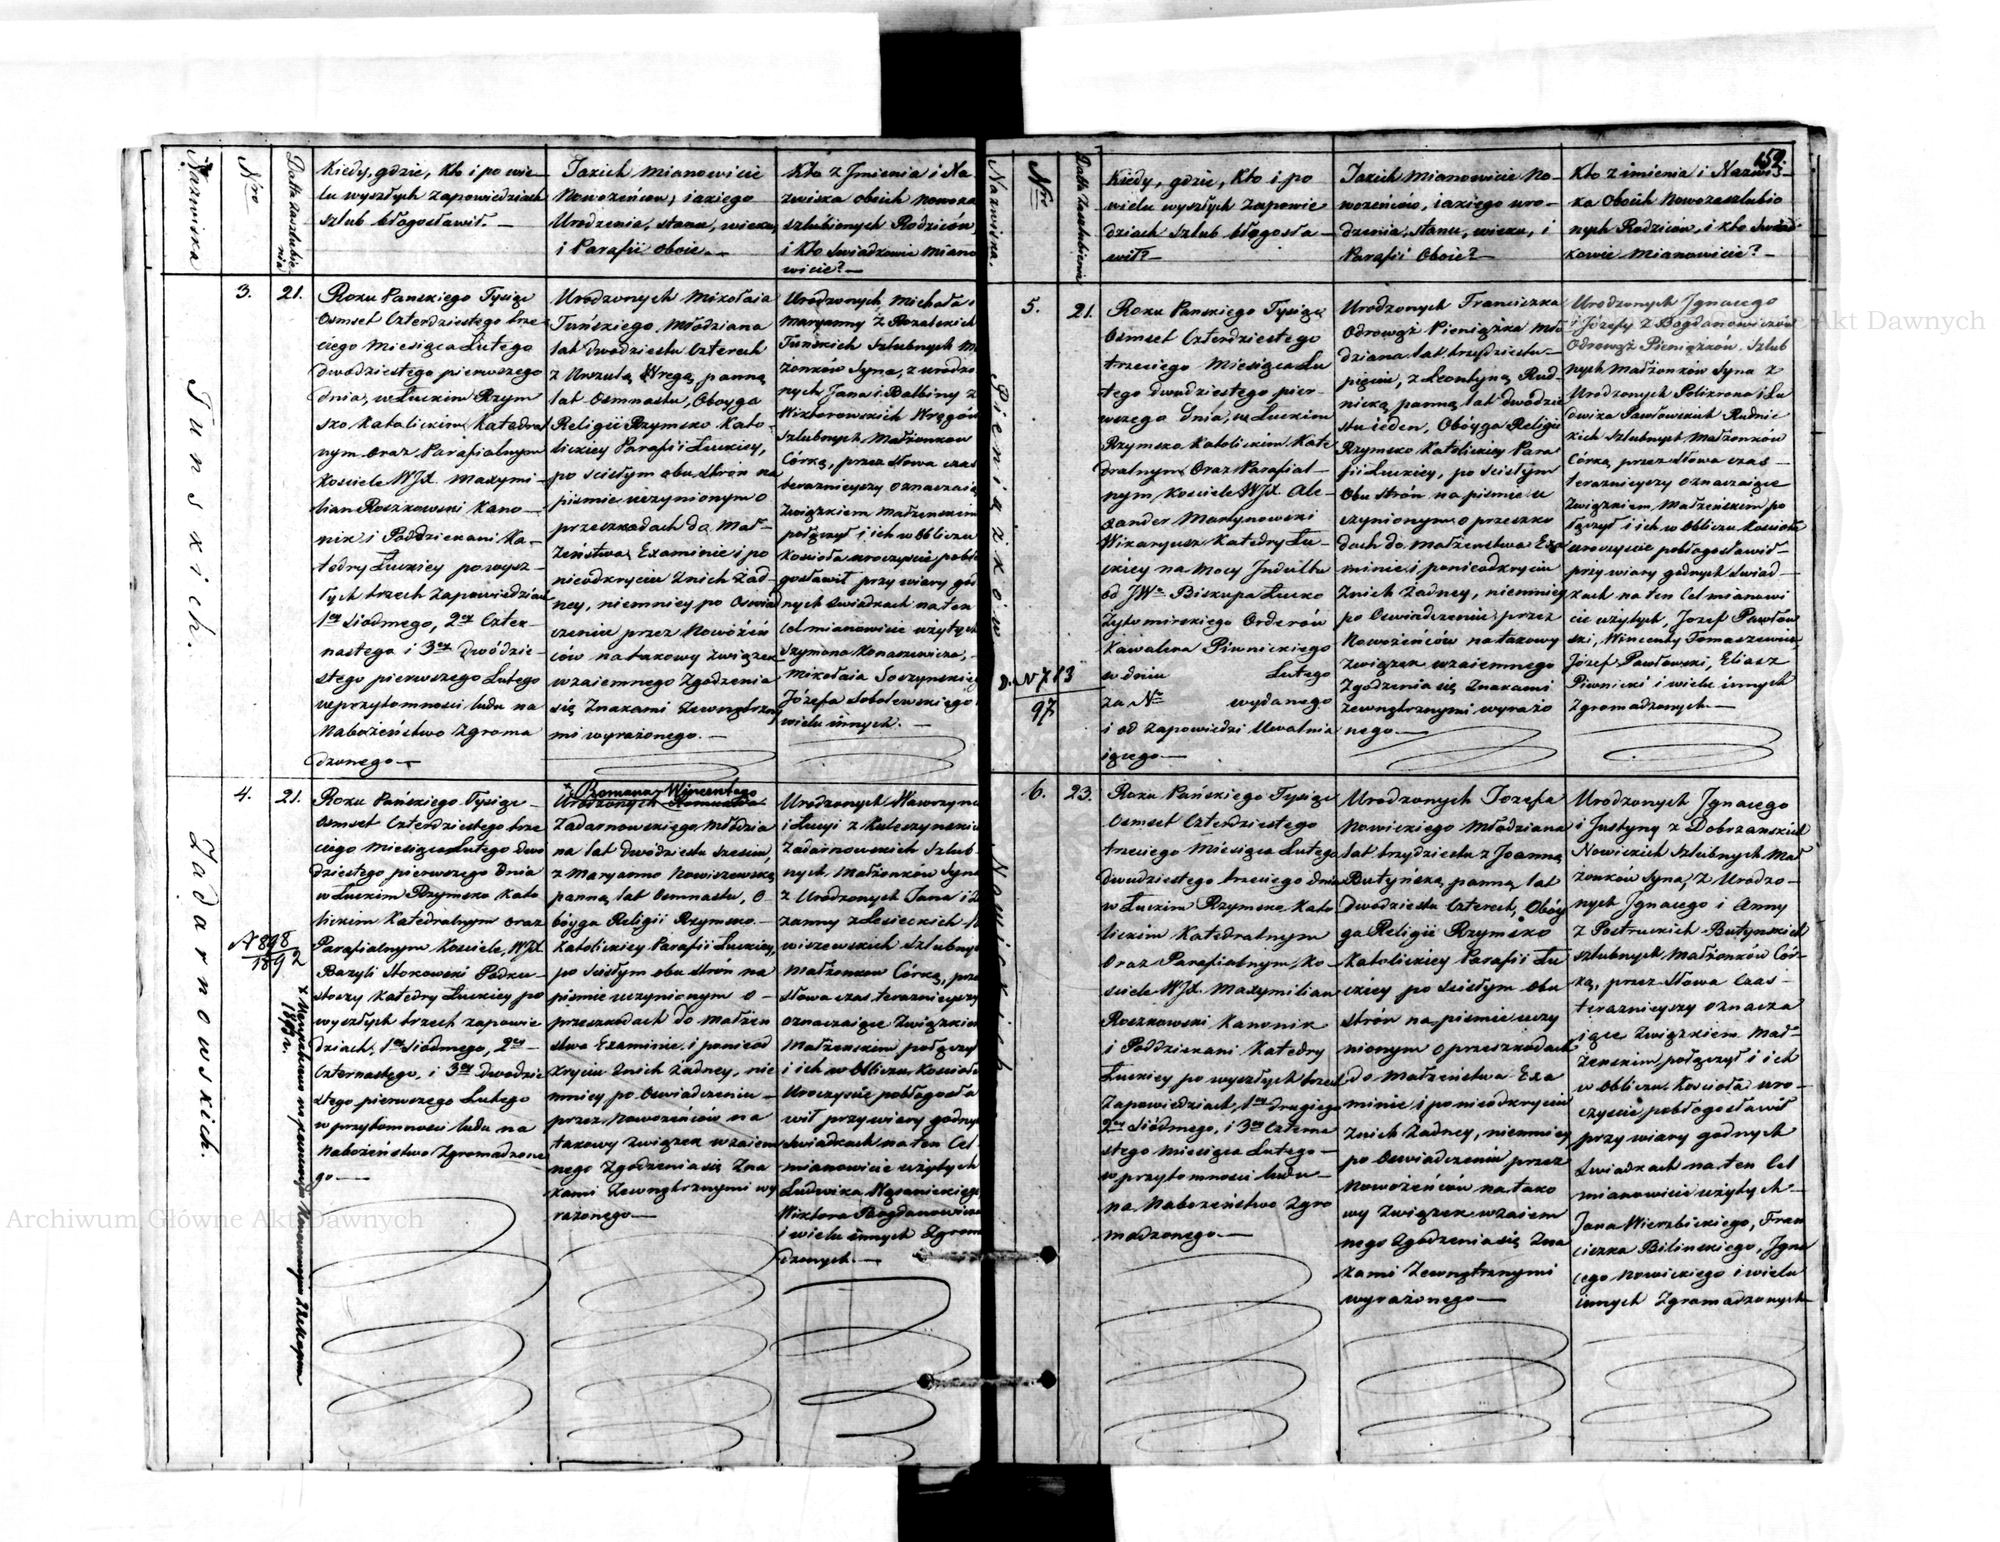 Nazwiska
Nro
Datta Zaszlubienia
Kiedy, gdzie, Kto i po wie-
lu wyszłych zapowiedziach
szlub błogosławił. —
Jakich mianowicie
Nowożeńców, iakiego
Urodzenia, stanu, wieku,
i Parafii oboie. —
Kto z Jmienia i Na
zwiska obuch nowoza
szlubionych Rodziców,
i Kto Swiadkowie miano
wicie? —
Tunskich.
3.
21.
Roku Panskiego Tysiąc
Osmset Czterdziestego trze
ciego Miesiąca Lutego
dwodziestego pierwszego
dnia, w Łuckim Rzym
sko Katolickim Katedral
nym oraz Parafialnym
Kosciele WJX. Maxymi-
lian Roszkowski Kano-
nik i Poddziekani Ka-
tedry Łuckiey po wysz-
łych trzech zapowiedziach
1ey Siódmego, 2ey Czter-
nastego i 3ey dwódzie-
stego pierwszego Lutego
w przytomnosci ludu na
Nabożeństwo zgroma
dzonego —
Urodzonych Mikołaia
Tuńskiego, Młodziana
lat dwodziestu Czterech
z Urszulą Wregą, panną
lat Osmnastu, Oboyga
Religii Rzymsko Kato-
lickiey Parafii Łuckiey,
po scisłym obu stron na
pismie uczynionym o
przeszkodach do Mał-
żeństwa, Examinie i po
nieodkryciu Znich żad-
ney, niemniey po Oswiad
czeniu przez Nowożeń
ców na takowy Związek
wzaiemnego Zgodzenia
się Znakami Zewnętrzny
mi wyrażonego. —
Urodzonych Michała i
Maryanny z Rozalskich
Tunskich Szlubnych Mał
żonków Syna, z urodzo
nych Jana i Balbiny z
Wiktorowskich Wręgów
Szlubnych Małżonkow
Córką, przez Słowa czas
terazniejszy oznaczaią
Związkiem Małżenskim
połączył i ich w Obliczu
Kosciola uroczyscie pobło
gosławił przy wiary god
nych Swiadkach na ten
Cel mianowicie użytych
Szymona Konaszewicza,
Mikołaia Soczynskieg
Józefa Sobolewskiego
wielu innych. —
Zadarnowskich.
4.
21.
N 898
1892
Roku Pańskiego Tysiąc-
Osmset Czterdziestego trze
ciego Miesiąca Lutego dwo
dziestego pierwszego Dnia
w Łuckim Rzymsko Kato
lickim Katedralnym oraz
Parafialnym Kosciele, WJX.
Bazyli Stokowski Podku-
stoszy Katedry Łuckiey po
wyszłych trzech zapowie
dziach, 1ey Siódmego, 2ey-
Czternastego, i 3ey dwodzie
stego pierwszego Lutego
w przytomnosci ludu na
Nabożeństwo Zgromadzone
go —
x Romana Wincentego
Urodzonych Romualda
Zadarnowskiego, Młódzia
na lat dwódziestu szesciu,
z Maryanno Nowiszewską
panną, lat Osmnastu, O
bóyga Religii Rzymsko
Katolickiey Parafii Łuckiey,
po scisłym obu Strón na
pismie uczynionym o-
przeszkodach do Małżeń
stwa Examinie i ponieod
kryciu Znich żadney, nie
mniey po Oswiadczeniu-
przez Nowożeńców na
takowy Związek wzaiem
nego Zgodzenia się Zna
kami Zewnętrznymi wy
rażonego —
Urodzonych Wawrzyna
i Łucyi z Kuleszynskic
Zadarnowskich Szlub-
nych Małżonków Syna
z Urodzonych Jana i
zanny z Łosieckich
wiszewskich Szlubny
Małżonkow Córką, prze
Słowa czas terazniejszy
oznaczaiące Związkiem
Małżenskim połączył
i ich w Obliczu Kosciola
Uroczyscie pobłogosła
wił przy wiary godny
Swiadkach na ten Cel
mianowicie użytych
Ludwika
Wiktora Bogdanowicza
i wielu innych Zgrom
dzonych. —
Nazwiska.
Nro
Datta Zaszlubienia
152.
Kiedy, gdzie, Kto i po
wielu wyszłych Zapowie
dziach szlub błogosła-
wił? —
Jakich Mianowicie No-
wożeńców, iakiego uro-
dzenia, stanu, wieku, i
Parafii Oboie? —
Kto z imienia i Nazwis-
ka Obuch Nowozaszlubio
nych Rodzicow, i kto Swiad
kowie Mianowicie? —
Pieniązków
5.
21.
N 713
97
Roku Panskiego Tysiąc
Osmset Czterdziestego
trzeciego Miesiąca Lu
tego dwudziestego pier-
wszego Dnia, w Łuckim
Rzymsko Katolickim Kate
dralnym, Oraz Parafial-
nym, Kosciele WJX. Ale-
xander Martynowski
Wikaryusz Katedry Łu-
ckiey na Mocy Indultu
od JWo Biskupa Łucko
Żytomirskiego Orderów
Kawalera Piwnickiego
w dniu Lutego
za No wydanego
i od zapowiedzi Uwalnia
iącego —
Urodzonych Franciszka
Odrowąż Pieniązka Mło
dziana lat trzydziestu
pięciu, z Leontyną Rud-
nicką panną lat dwódzie
stu ieden, Obóyga Religii
Rzymsko Katolickiey Para
fii Łuckiey, po scisłym
Obu Strón na pismie u
czynionym o przeszko
dach do Małżenstwa Exa
minie i ponieodkryciu
Znich żadney, niemniey
po Oswiadczeniu przez
Nowożeńców na takowy
Związek wzaiemnego
Zgodzenia się Znakami
Zewnętrznymi wyrażo
nego —
Urodzonych Jgnacego
i Józefy z Bogdanowiczów
Odrowąż Pieniązków Szlub
nych Małżonków Syna z
Urodzonych Polikrona i Lu
dwiki Pawłowskich Rudnic
kich Szlubnych Małżonków
Córką, przez słowa czas-
terazniejszy oznaczaiące
Związkiem Małżenskim po
łączył i ich w Obliczu Kosciola
uroczyscie pobłogosławił-
przy wiary godnych Swiad-
kach na ten Cel mianowi
cie użytych, Józef Pawłow
ski, Wincenty Tomaszewicz,
Józef Pawłowski, Eliasz
Piwnicki i wielu innych
Zgromadzonych —
Nowickich
6.
23.
Roku Pańskiego Tysiąc
Osmset Czterdziestego
trzeciego Miesiąca Lutego
dwudziestego trzeciego Dnia
w Łuckim Rzymsko Kato
lickim Katedralnym
Oraz Parafialnym, Ko-
sciele WJX. Maxymilian
Roszkowski Kanonik
i Poddziekani Katedry
Łuckiey po wyszłych trzech
Zapowiedziach, 1ey drugiego
2ey Siódmego, i 3ey Czterna
stego Miesiąca Lutego-
w przytomnosci ludu-
na Nabożeństwo Zgro
madzonego —
Urodzonych Jozefa
Nowickiego Młodziana
lat trzydziestu z Joanną
Butyńską, panną lat
Dwodziestu Czterech, Obóy
ga Religii Rzymsko
Katolickiey Parafii Łu
ckiey po scisłym obu
strón na pismie uczy
nionym o przeszkodach
do Małżeństwa Exa
minie, i ponieodkryciu
Znich żadney, niemniey
po Oswiadczeniu przez
Nowożeńców na tako
wy Związek wzaiem
nego Zgodzenia się Zna
kami Zewnętrznymi
wyrażonego —
Urodzonych Jgnacego
i Justyny z Dobrzanskich
Nowickich Szlubnych Mał
żonków Syna, z Urodzo-
nych Jgnacego i Anny
z Butynskich
szlubnych Małżonków Cór-
ką, przez Słowa Czas-
terazniejszy oznacza
iące Związkiem Mał-
żenskim połączył i ich
w Obliczu Kosciola uro-
czyscie pobłogosławił
przy wiary godnych
Swiadkach na ten Cel
mianowicie użytych-
Jana Wierzbickiego, Fran
ciszka Bilinskiego, Jgna
cego Nowickiego i wielu
innych Zgromadzonych —
Archiwum Główne Akt Dawnych
Archiwum Główne Akt Dawnych